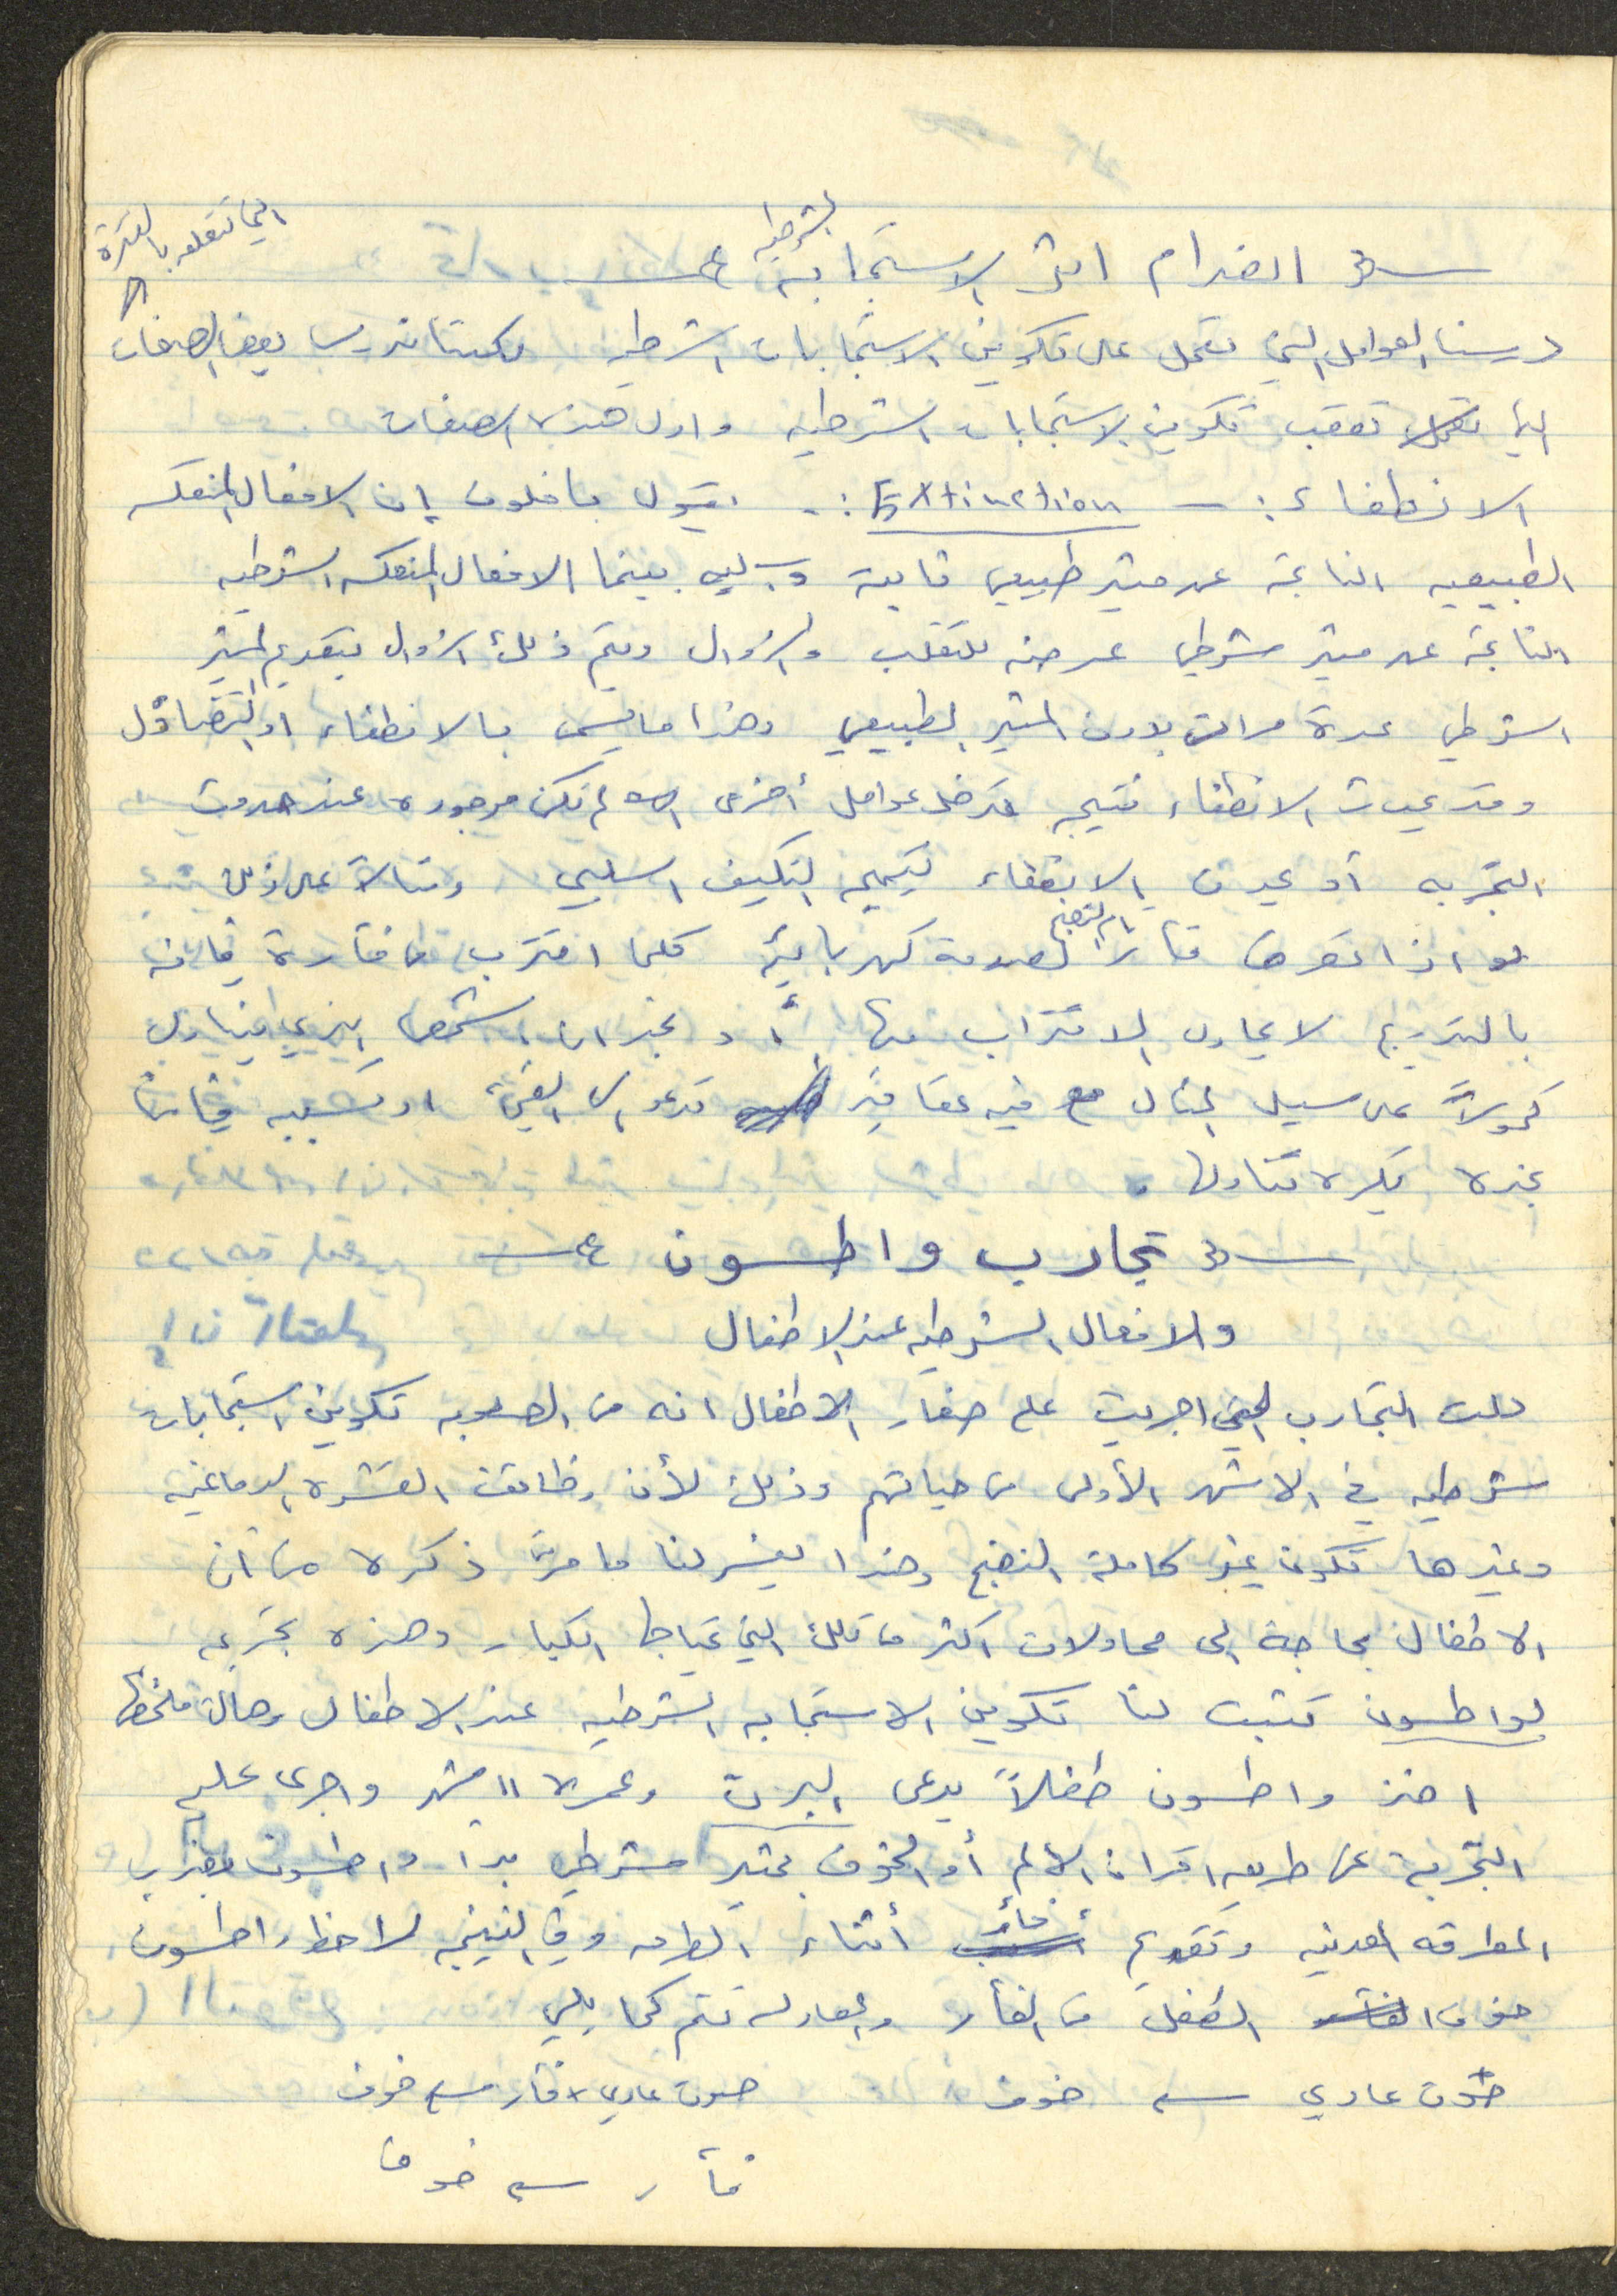 انعدام اثر الاستجابة الشرطيه
التي تتعلق بالفترة
درسنا العوامل التي تعمل على تكوين الاستجابات الشرطيه ولكننا ندرس بعض الصفات
التي تعقب تكوين الاستجابات الشرطيه واول هذه الصفات
الانطفاء :- Extinction :- يقول بافلوف إن الافعال المنعكسه
الطبيعيه الناتجة عن مثير طبيعي ثابتة بينما الافعال المنعكسه الشرطيه
الناتجة عن مثير شرطي عرضه للتقلب والزوال ويتم ذلك الزوال بتقديم المثير
الشرطي عدة مرات بدون المثير الطبيعي وهذا ما يسمى بالانطفاء او التضاؤل
وقد يحدث الانطفاء نتيجه تدخل عوامل أخرى لم تكن موجوده عند حدوث
التجربه أو يحدث الانطفاء نتيجه التكيف السلبي ومثالاً على ذلك
لو اذا تعرض فأر لصدمة كهربائية كلما اقترب من فأرة فإنه
بالتدريج لا يحاول الاقتراب منها أو نجد ان الشخص الذي يتناول
كحولاً على سبيل المثال فيه عقاقير تدعو الى القيء او تسببه فإننا
نجده يكره تناولها
تجارب واطسون
والافعال الشرطيه عند الاطفال
دلت التجارب التي اجريت على صغار الاطفال انه من الصعوبه تكوين استجابات
شرطيه في الاشهر الأولى من حياتهم وذلك لأن وظائف القشره الدماغيه
وغيرها تكون غير كاملة النضج وهذا يفسر لنا ما مرّ ذكره من أن
الاطفال بحاجة الى محاولات اكثر من تلك التي يحتاجها الكبار وهذه تجربه
لواطسون تثبت لنا تكوين الاستجابه الشرطيه عند الاطفال وهاك ملخصها
اخذ واطسون طفلاً يدعى البرت وعمره ١١ شهر واجرى عليه
التجربة عن طريق اقتران الالم أو الخوف بمثير شرطي بدأ واطسون بضرب
المطرقه المعدنيه وتقديم فأر أثناء الطرق وفي النتيجه لاحظ واطسون
خوف الطفل من الفأر والمعادله تتم كما يلي
صوت عادي ← خوف صوت عادي + فأر ← خوف
فأر ← خوف